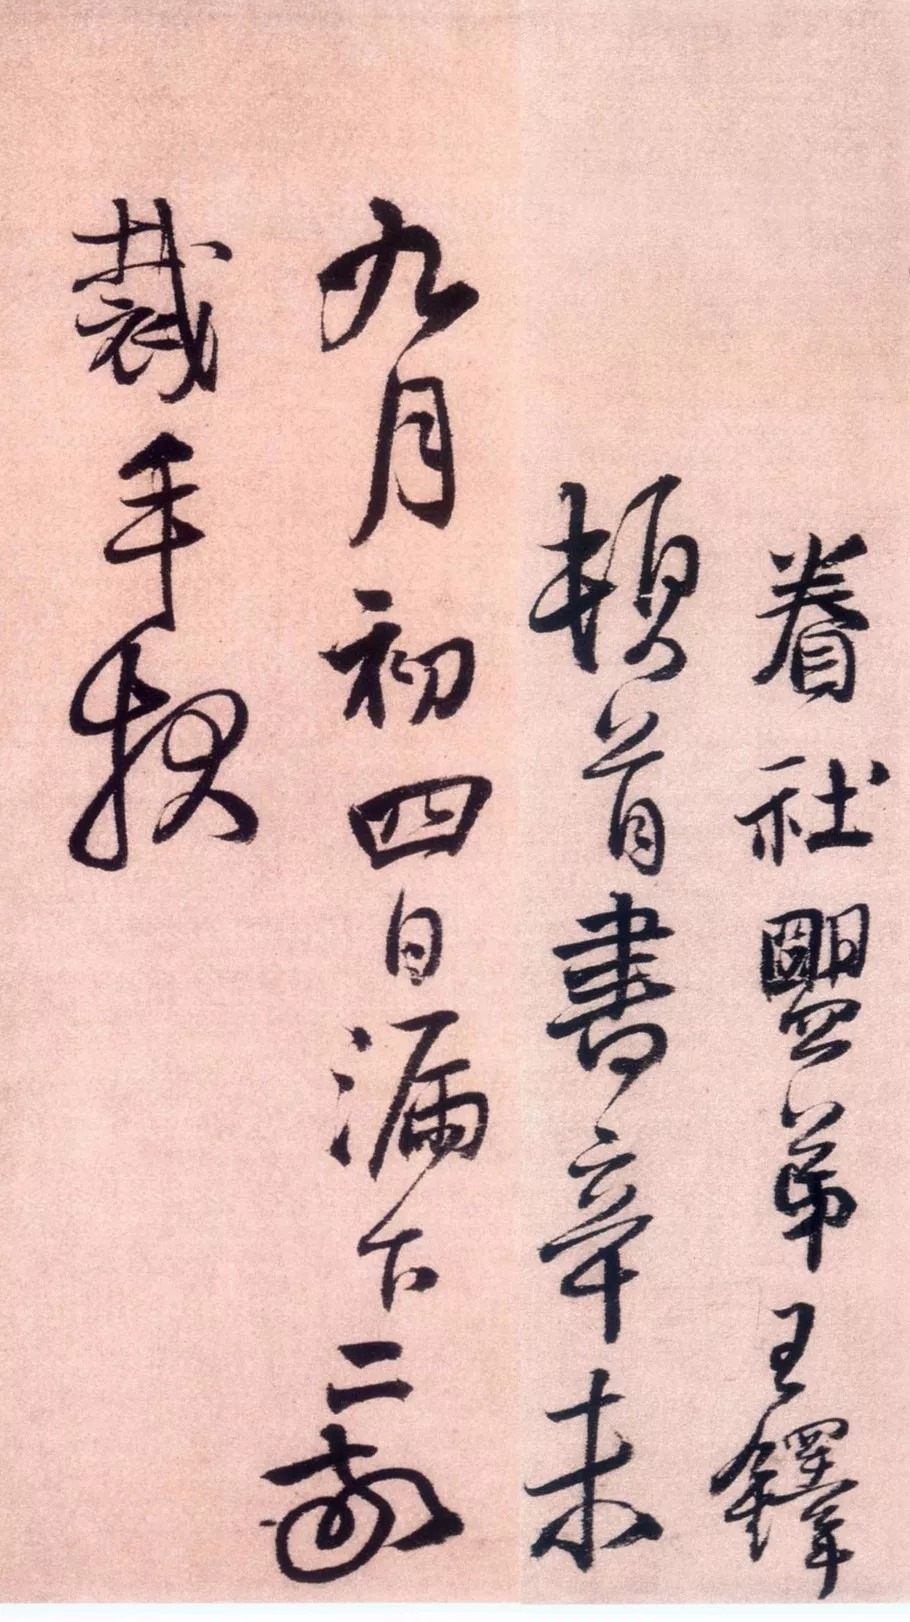 眷社盟弟王鐸
頓首書辛未
九月初四日漏下二
裁手